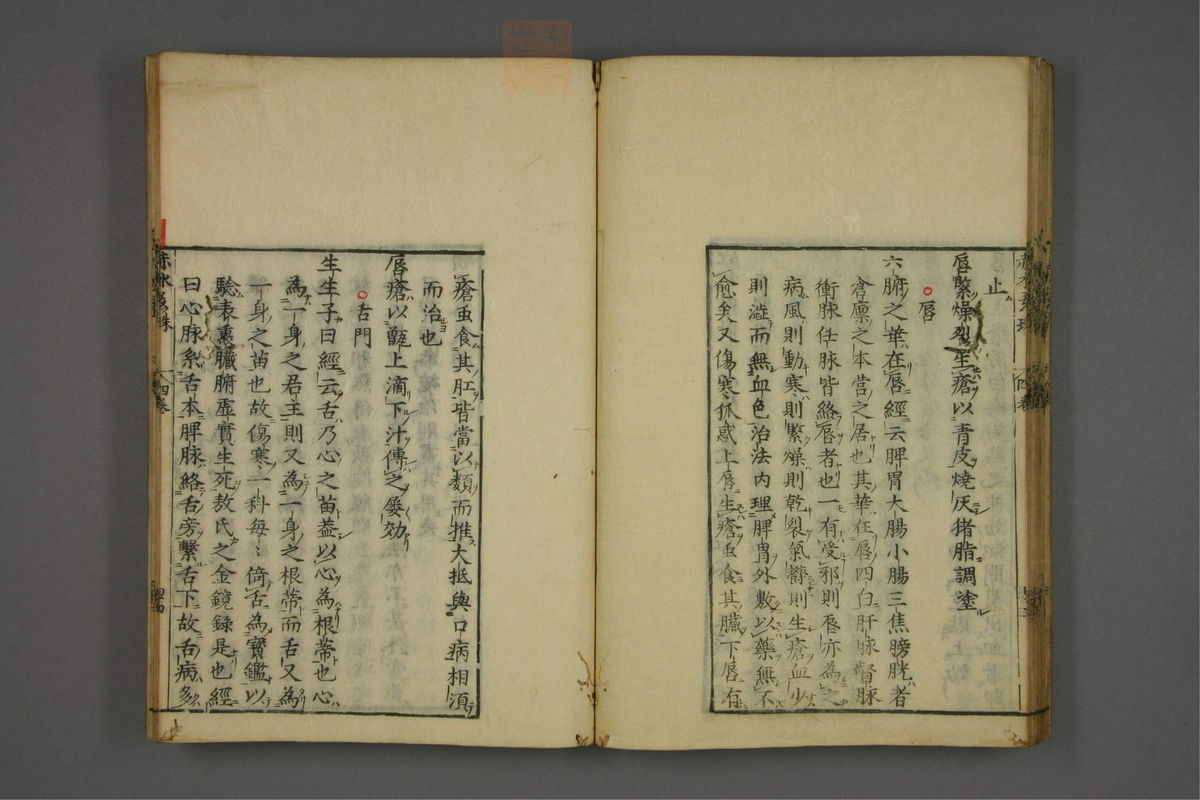 止
唇緊燥裂生瘡以青皮燒灰猪脂調塗
唇
六腑之華在唇經云脾胃大腸小腸三焦膀胱者
倉廪之本营之居也其華在唇四白肝脉督脉
衝脉任脉皆絡唇者也一有受邪則唇亦為之
病風則動寒則緊燥則乾裂氣欝則生瘡血少
則澁而無血色治法内理脾胃外敷以藥無不
愈矣又傷寒狐惑上唇生瘡虫食其臓下唇有
瘡虫食其肛皆當以類而推大抵與口病相湏
而治也
唇瘡以甑上滴下汁傅之屡効
舌門
生生子曰經云舌乃心之苗葢以心為根蒂也心
為一身之君主則又為一身之根蒂而舌又為
一身之苗也故傷寒一科每〻倚舌為寳鑑以
驗表裏臓腑虚實生死敖氏之金鏡録是也經
曰心脉系舌本脾脉絡舌旁繫舌下故舌病多
赤水玄珠
四卷